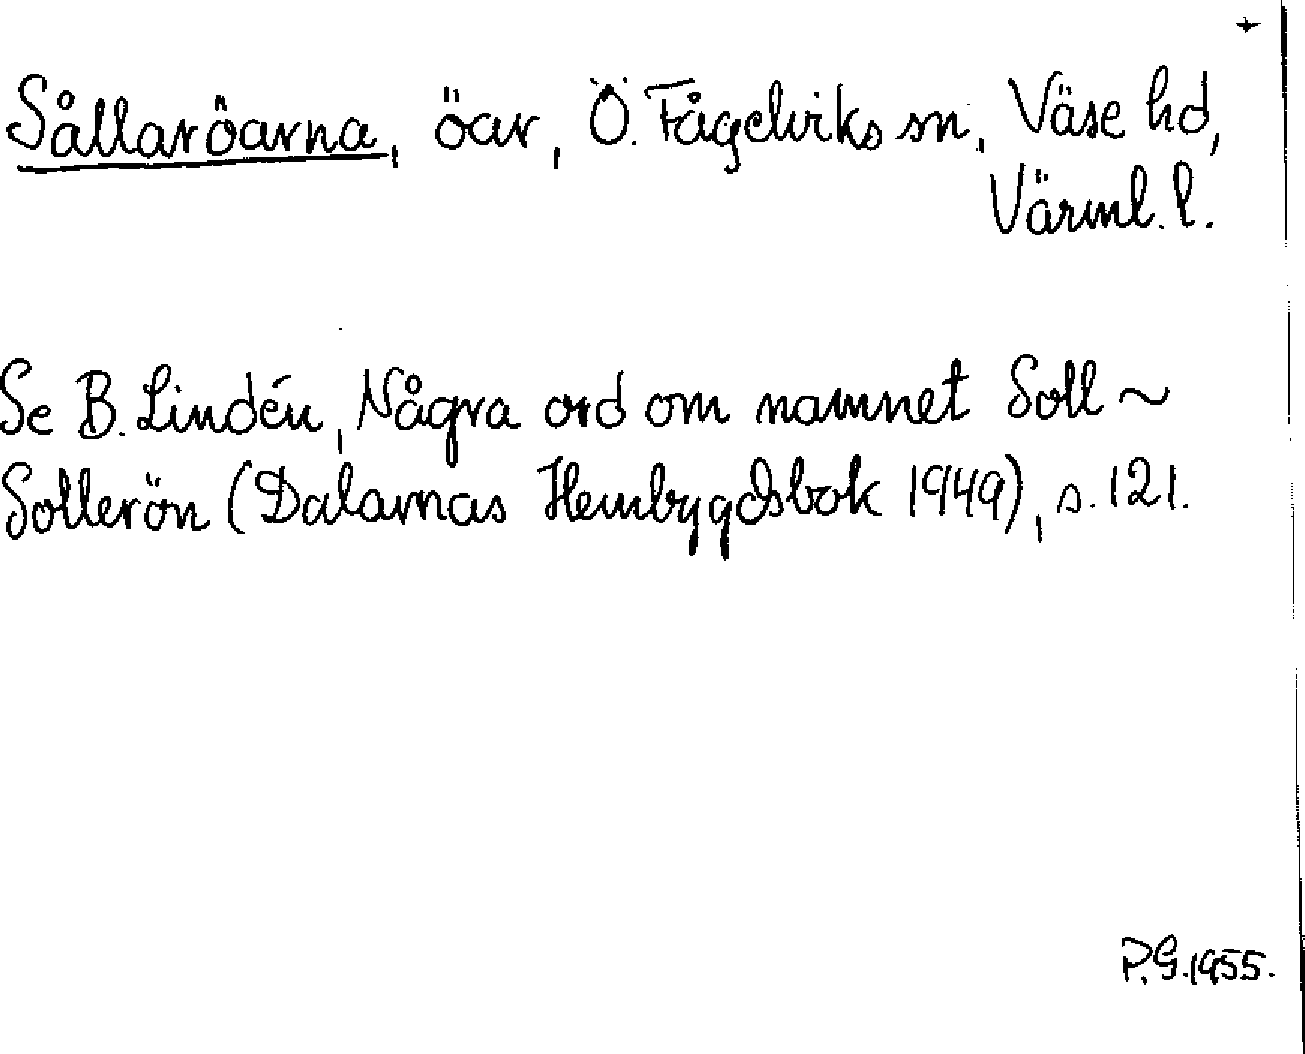 +
Sållaröarna, öar, Ö. Fågelviks sn, Väse hd,
Värml. l.
Se B. Lindén, Några ord om namnet Soll ~
Sollerön (Dalarnas Hembygdsbok 1949), s. 121.
P.G. 1955.